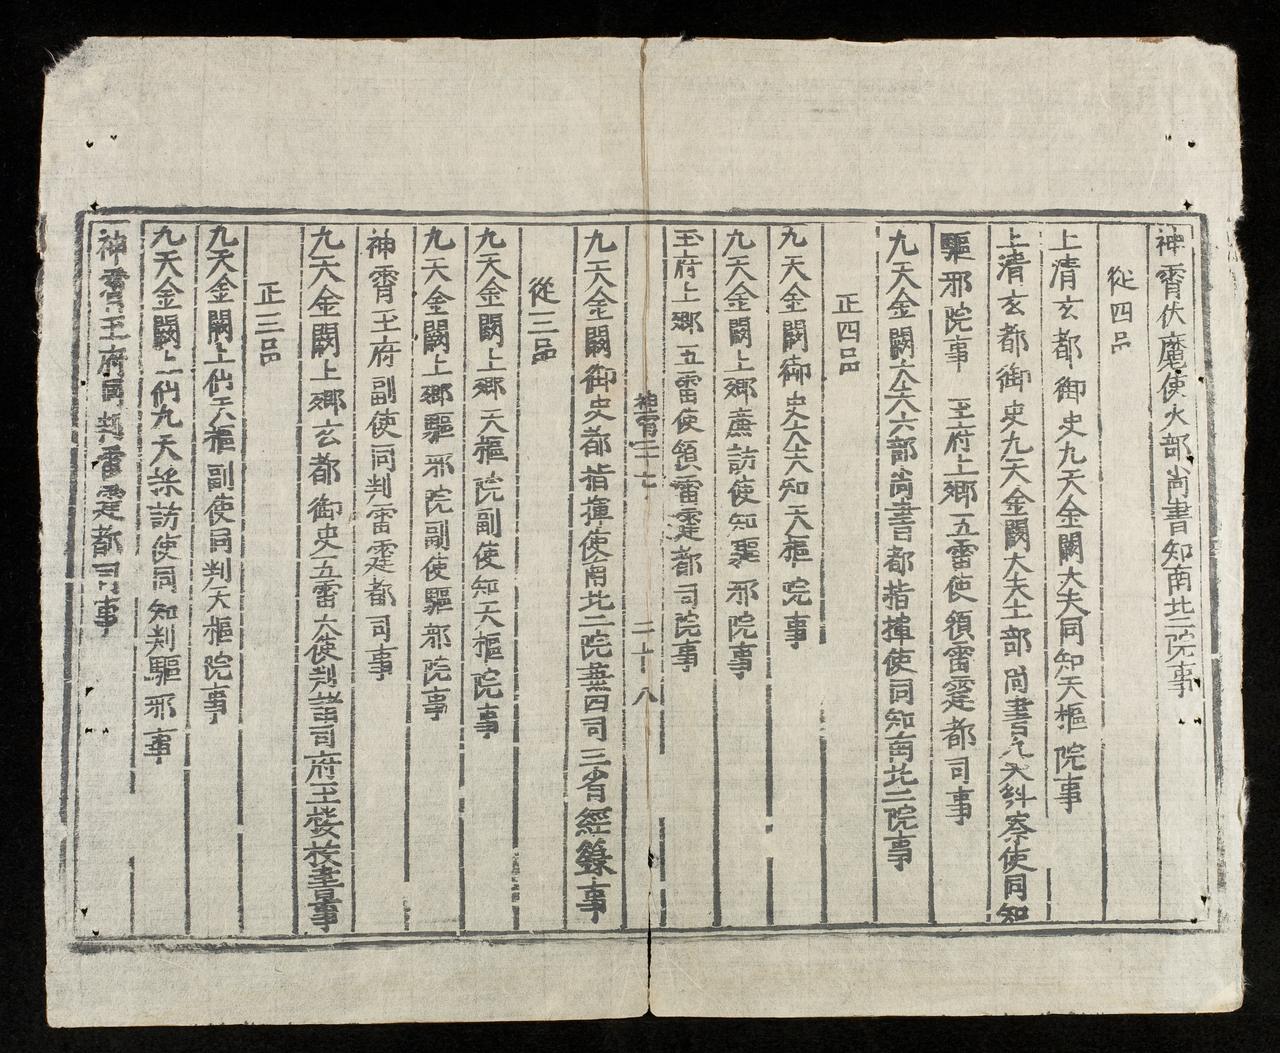 神霄伏魔使火部尚書知南北二院事
從四品
上清玄都御史九天金闕大夫同知天樞院事
上清玄都御史九天金闕大夫士部尚書九天糾察使同知
驅邪院事 玉府上卿五雷使領雷霆都司事
九天金闕大夫六部尚書都指揮使同知南北二院事
正四品
九天金闕御史大夫知天樞院事
九天金闕上卿廉訪使知驅邪院事
玉府上卿五雷使領雷霆都司院事
神霄三七 二十八
九天金闕御史都指揮使南北二院兼四司三省經籙事
從三品
九天金闕上卿天樞院副使知天樞院事
九天金闕上卿驅邪院副使驅邪院事
神霄玉府副使同判雷霆都司事
九天金闕上卿玄都御史五雷大使判諸司府王發放書事
正三品
九天金闕上仙天樞副使同判天樞院事
九天金闕上仙九天採訪使同知判驅邪事
神霄玉府同判雷霆都司事